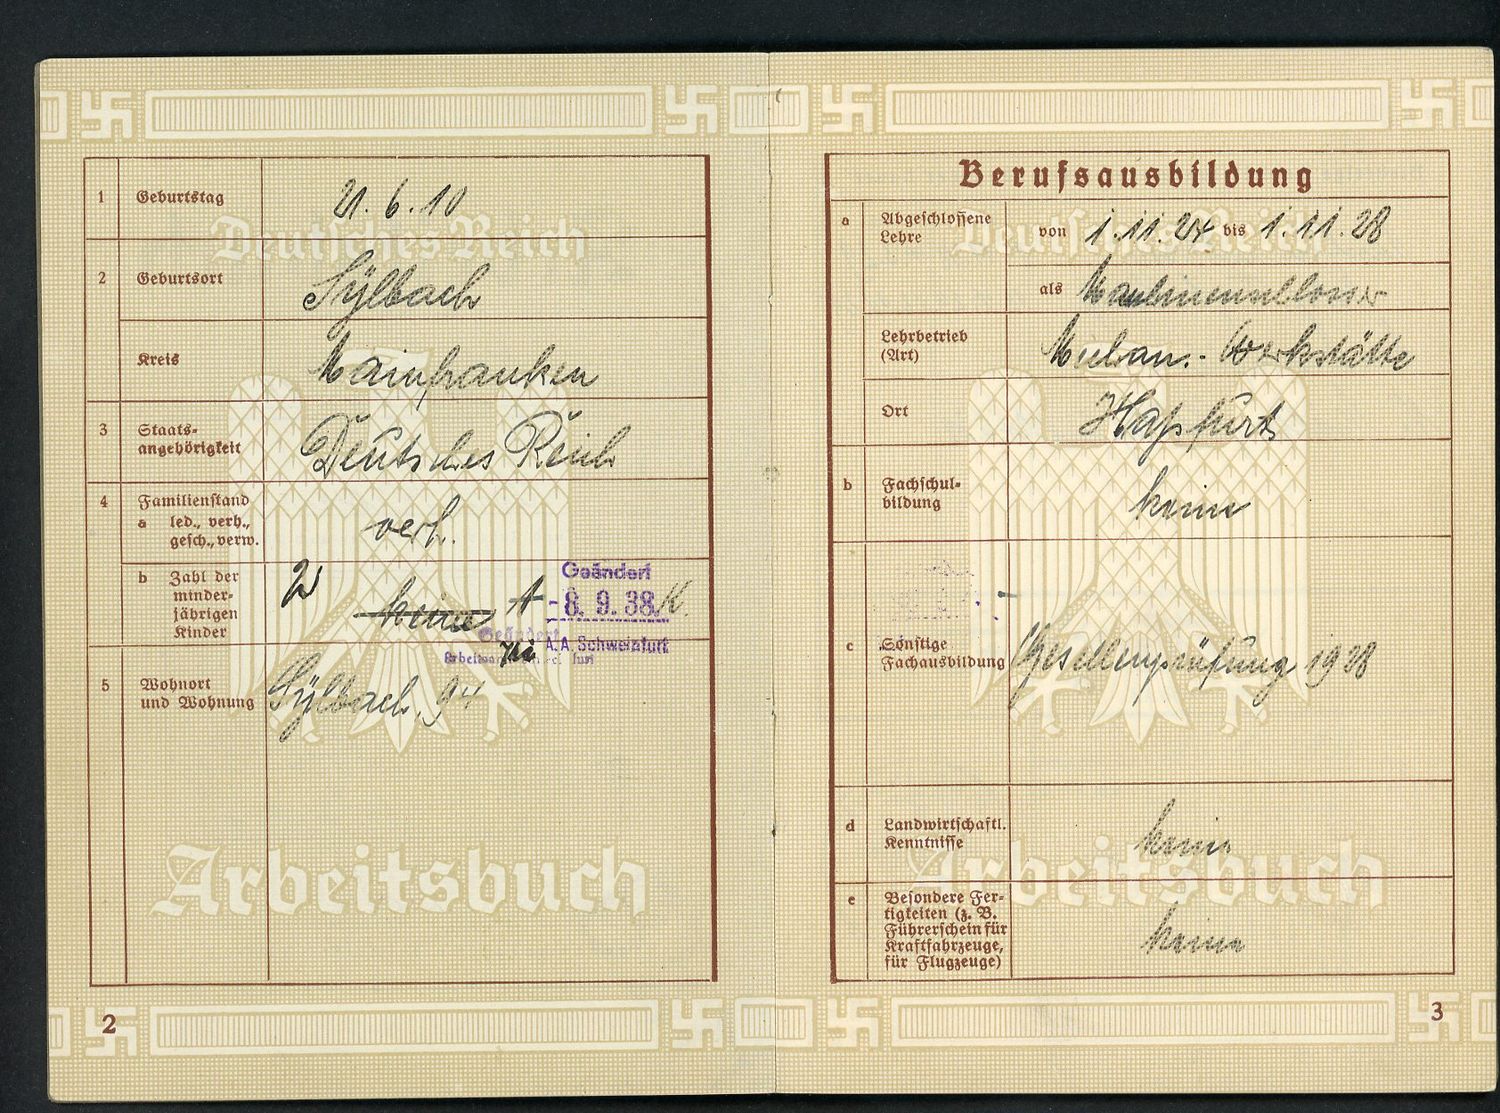 1 Geburtstag 21.6.10
Deutsches Reich
2 Geburtsort Sÿlbach
Kreis Mainfranken
3 Staats-
angehörigkeit Deutsches Reich
4 Familienstand
a led., verh.,
gesch., verw. verh.
b Zahl der
minder-
jährigen
Kinder 2 keine 1
Geändert
- 8. 9. 38.
A.A. Schweinfurt
Geändert
5 Wohnort
und Wohnung Sÿlbach 94
Arbeitsbuch
2
Berufsausbildung
a Abgeschlossene
Lehre von 1.11.24 bis 1.11.28
Deutsches Reich
als Maschinenschlosser
Lehrbetrieb
(Art) Mechan.- Werkstätte
Ort Haßfurt
b Fachschul-
bildung keine
c Sonstige
Fachausbildung Gesellenprüfung 1928
d Landwirtschaftl.
Kenntnisse keine
Arbeitsbuch
e Besondere Fer-
tigkeiten (z. B.
Führerschein für
Kraftfahrzeuge,
für Flugzeuge) keine
3